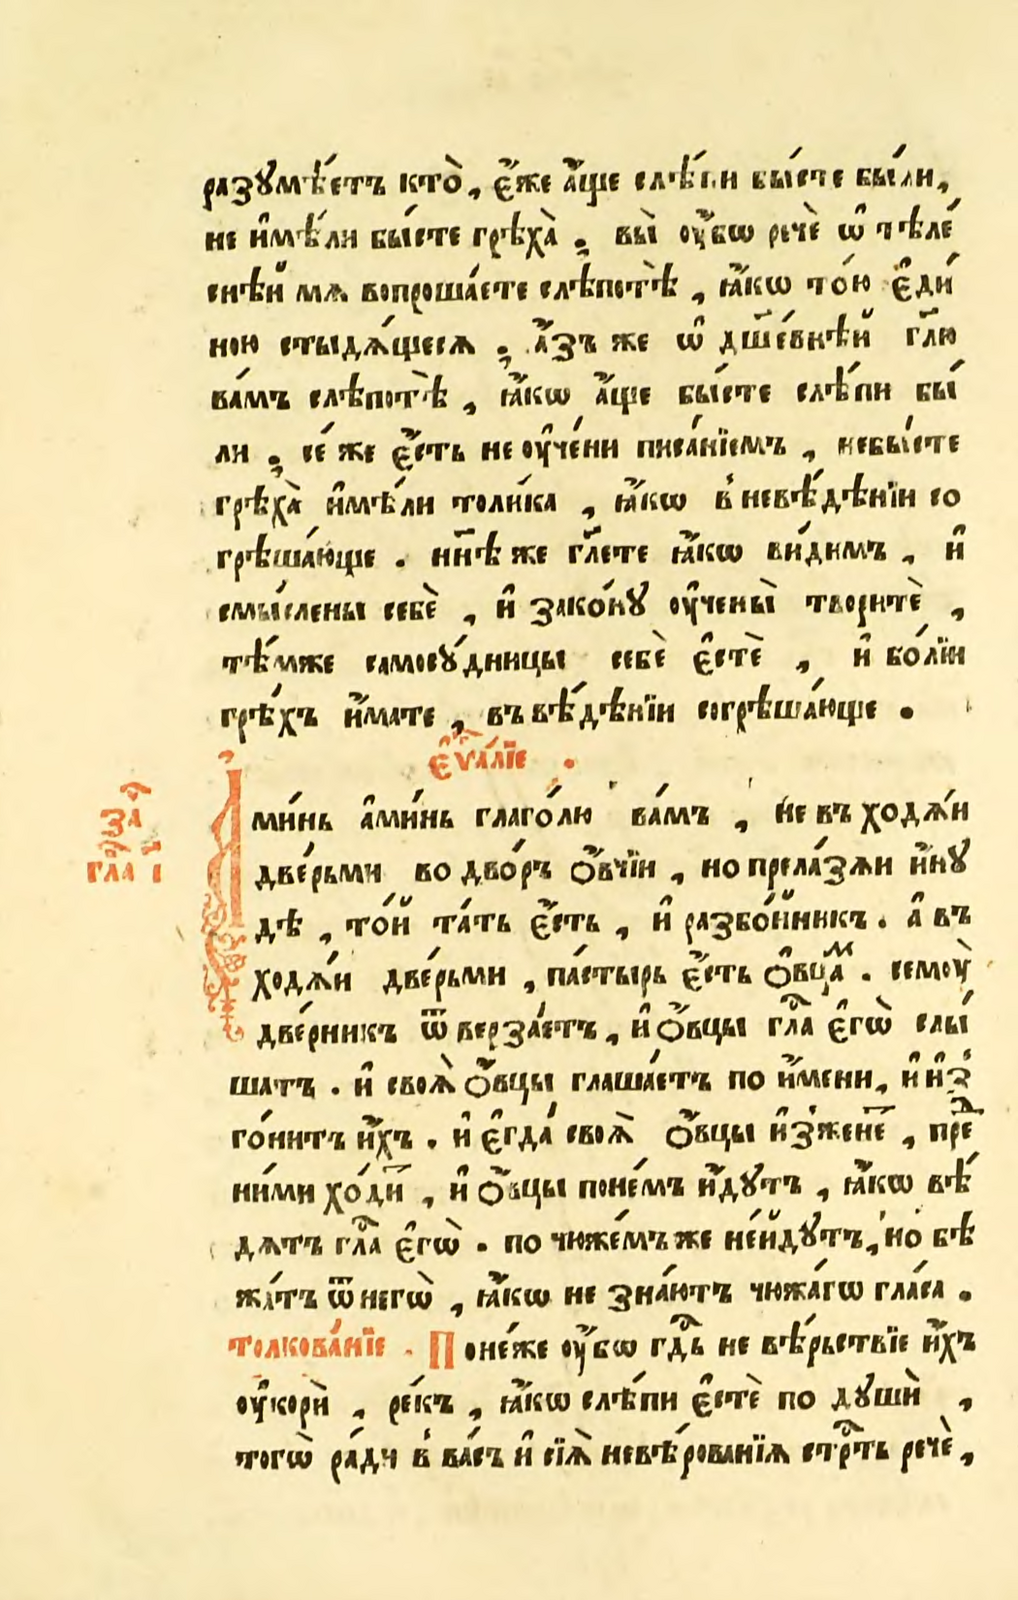 разꙋмѣ́етъ кто̀, є҆́же а҆́ще слѣ́пи бы́сте бы́ли,
не и҆мѣ́ли бы́сте грѣха̀ ; вы̀ оу҆́бѡ речѐ ѡ҆ тѣле́
снѣй мѧ вопроша́ете слѣпотѣ̀ , ꙗ҆́кѡ то́ю є҆ди́
ною стыдѧ́щесѧ ; а҆́зъ же ѡ҆ дш҃е́внѣй гл҃ю
ва́мъ слѣпотѣ̀ , ꙗ҆́кѡ а҆́ще бы́сте слѣ́пи бы́
ли ; се́ же є҆́сть не оу҆че́ни писа́нїемъ , небы́сте
грѣха̀ и҆мѣ́ли толи́ка , ꙗ҆́кѡ в невѣ́дѣнїи со
грѣша́юще . нн҃ѣ же гл҃ете ꙗ҆́кѡ ви́димъ , и҆
смы́слены себѐ , и҆ зако́нꙋ оу҆чены̀ творитѐ ,
тѣ́мже самосꙋ́дницы себѐ є҆стѐ , и҆ бо́лїи
грѣ́хъ и҆́мате , въ вѣ́дѣнїи согрѣша́юще .
є҆ѵⷢ҇а́лїе .
А҆ми́нь а҆ми́нь глаго́лю ва́мъ , не въ ходѧ́и
две́рьми во дво́ръ ѻ҆́вчїи , но прела́зѧи и҆́нꙋ
дѣ , то́й та́ть є҆́сть , и҆ разбо́йникъ . а҆ въ
ходѧ́и две́рьми , па́стырь є҆́сть ѻ҆вца́ⷨ . семоу̀
две́рникъ ѿ верза́етъ , и҆ ѻ҆́вцы гла́ⷭ є҆гѡ̀ слы́
шатъ . и҆ своѧ̀ ѻ҆́вцы глаша́етъ по и҆́мени , и҆ и҆з
го́нитъ и҆́хъ . и҆ є҆гда́ своѧ̀ ѻ҆́вцы и҆зжене́ⷮ , преⷣ
ни́ми хо́диⷮ , и҆ ѻ҆́вцы поне́мъ и҆́дꙋтъ , ꙗ҆́кѡ вѣ́
дѧтъ гла́ⷭ є҆гѡ̀ . по чюже́мъ же не́йдꙋтъ , но бѣ
жа́тъ ѿ негѡ̀ , ꙗ҆́кѡ не зна́ютъ чюжа́гѡ гла́са .
толкова́нїе . Поне́же оу҆́бѡ гдⷭ҇ь не вѣ́рьствїе и҆́хъ
оу҆корѝ , ре́къ , ꙗ҆́кѡ слѣ́пи є҆стѐ по дꙋшѝ ,
тогѡ̀ ра́ди в ва́съ и҆ сїѧ̀ невѣ́рованїѧ стрⷭ҇ть речѐ ,
за
гла і҃